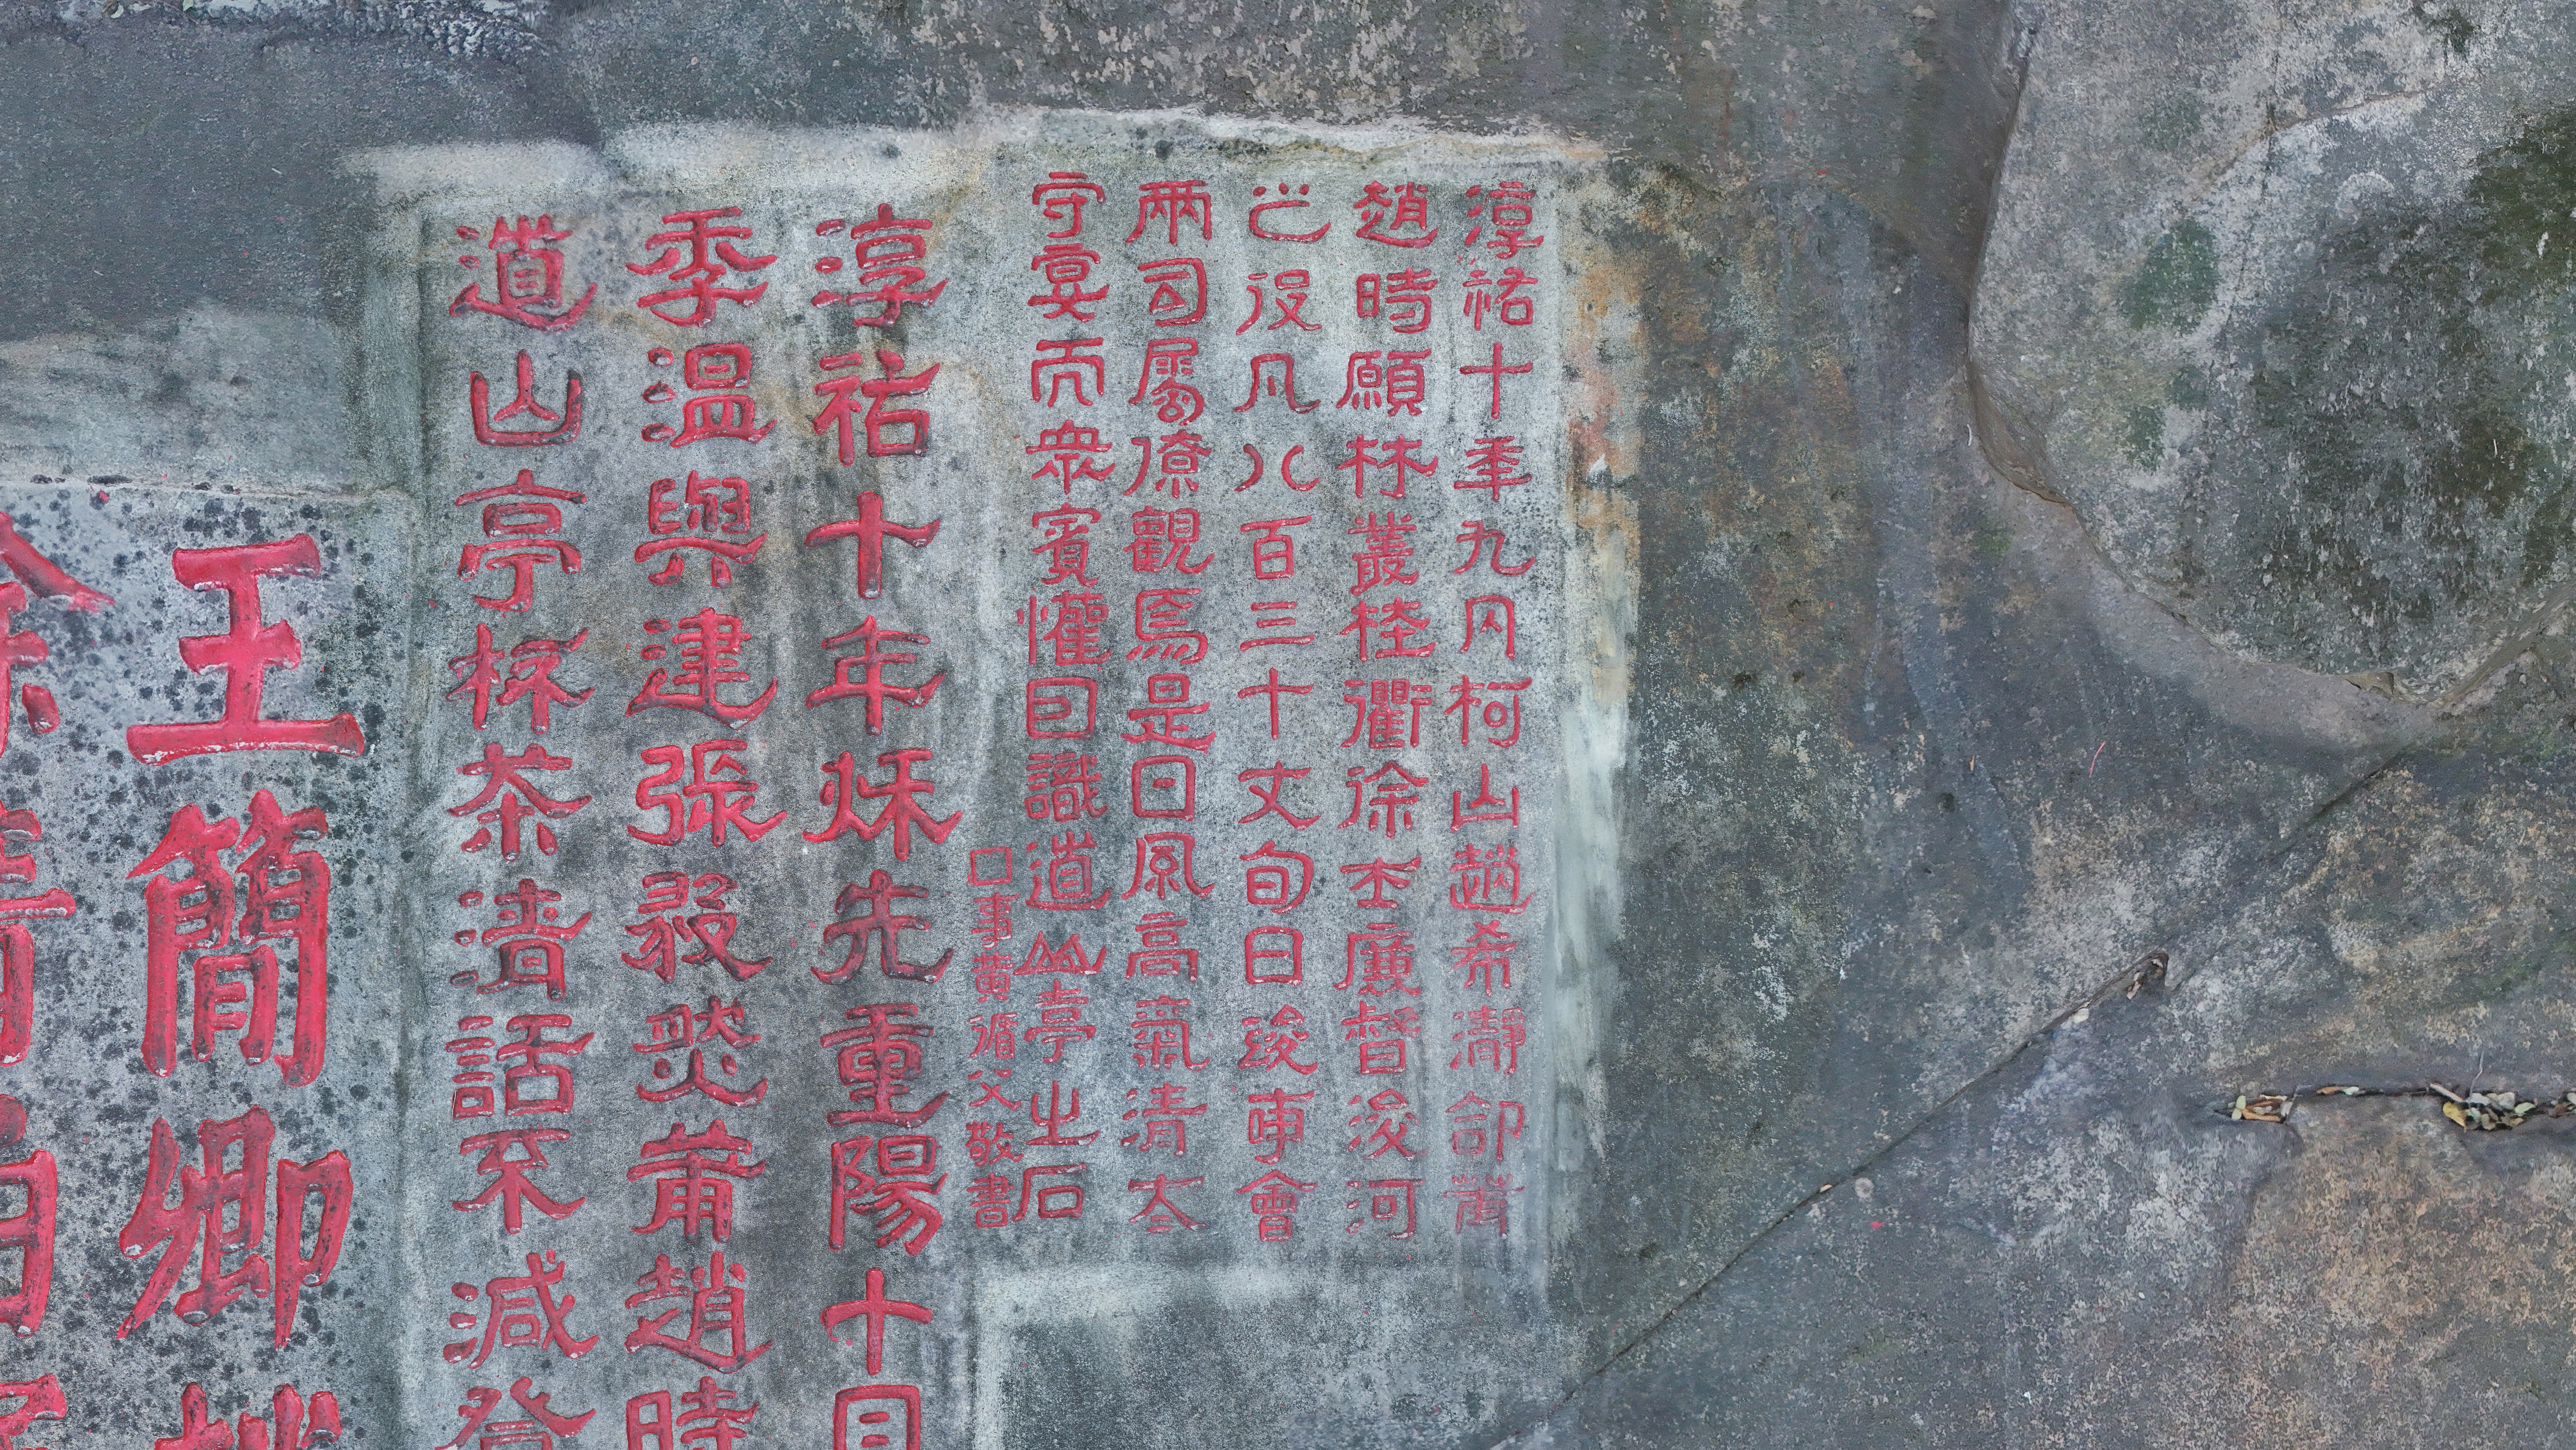 淳祐十年九月柯山趙希瀞命莆
趙時願林叢桂衢徐士廉督浚河
之役凡八百三十丈旬日竣事會
兩司屬僚觀焉是日風高氣清太
守宴而衆賓懽因識道山亭之石
□事黃循父敬書
淳祐十年秌先重陽十日
季温與建張莆趙時
道山亭杯茶清話不減登
王簡卿